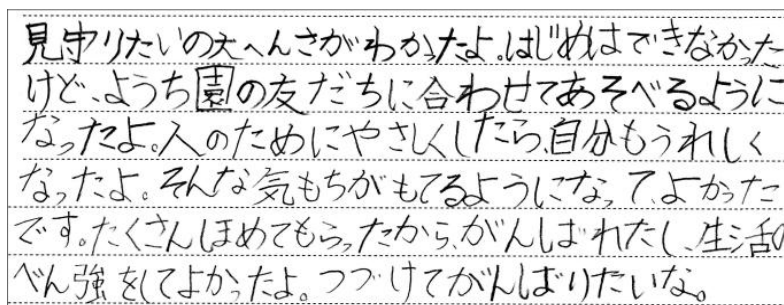 見守りたいの大へんさがわかったよ。はじめはできなかった
けど、ようち園の友だちに合わせてあそべるように
なったよ。人のためにやさしくしたら、自分もうれしく
なったよ。そんな気もちがもてるようになって、よかった
です。たくさんほめてもらったから、がんばれたし、生活の
べん強をしてよかったよ。つづけてがんばりたいな。